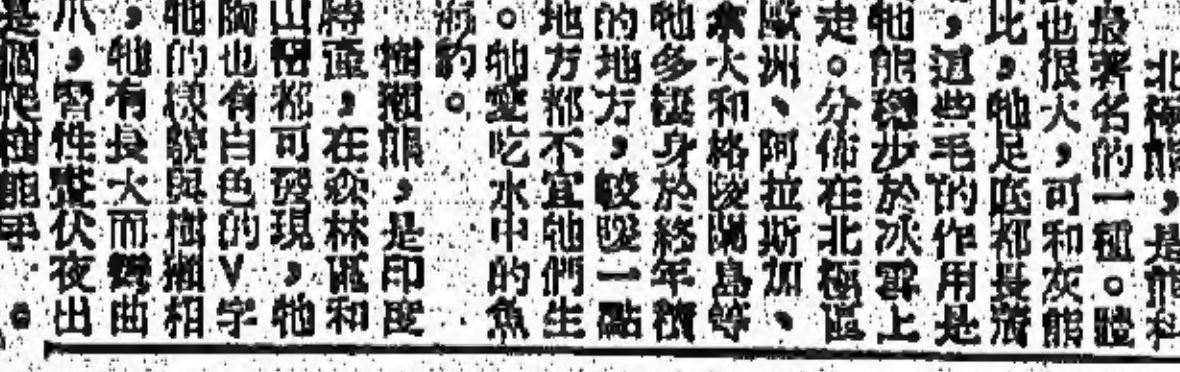 北極熊,是熊科
最著名的一種。體
也很大,可和灰熊
比,牠足底都長滿
,這些毛的作用是
牠能穩步於冰雪上
走。分佈在北極區
歐洲、阿拉斯加、
拿大和格陵蘭島等
牠多棲身於終年積
的地方,較暖一點
地方都不宜牠們生
。牠愛吃水中的魚
海豹。
樹獺熊,是印度
特產,在森林區和
山都可發現,牠
胸也有白色的V字
牠的樣貌與樹獺相
,牠有長大而彎曲
爪,習性晝伏夜出
是個爬樹能手。